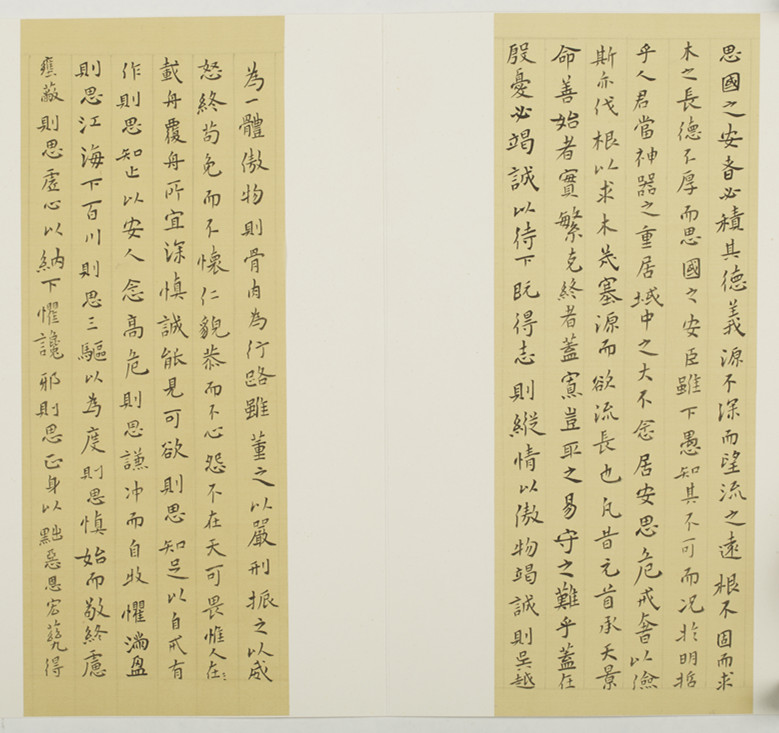 思國之安者必積其德義源不深而望流之遠根不固而求
木之長德不厚而思國之安臣雖下愚知其不可而况於明哲
乎人君當神器之重居域中之大不念居安思危戒奢以儉
斯亦伐根以求木茂塞源而欲流長也凡昔元首承天景
命善始者實繁克終者蓋寡豈取之易守之難乎蓋在
殷憂必竭誠以待下既得志則縱情以傲物竭誠則吳越
為一體傲物則骨肉為行路雖董之以嚴刑振之以威
怒終苟免而不懷仁貌恭而不心怨不在天可畏惟人在
載舟覆舟所宜深慎誠能見可欲則思知足以自戒有
作則思知止以安人念高危則思謙冲而自牧懼滿盈
則思江海下百川則思三驅以為度則思慎始而敬終慮
壅蔽則思虛心以納下懼讒邪則思正身以黜惡恩得